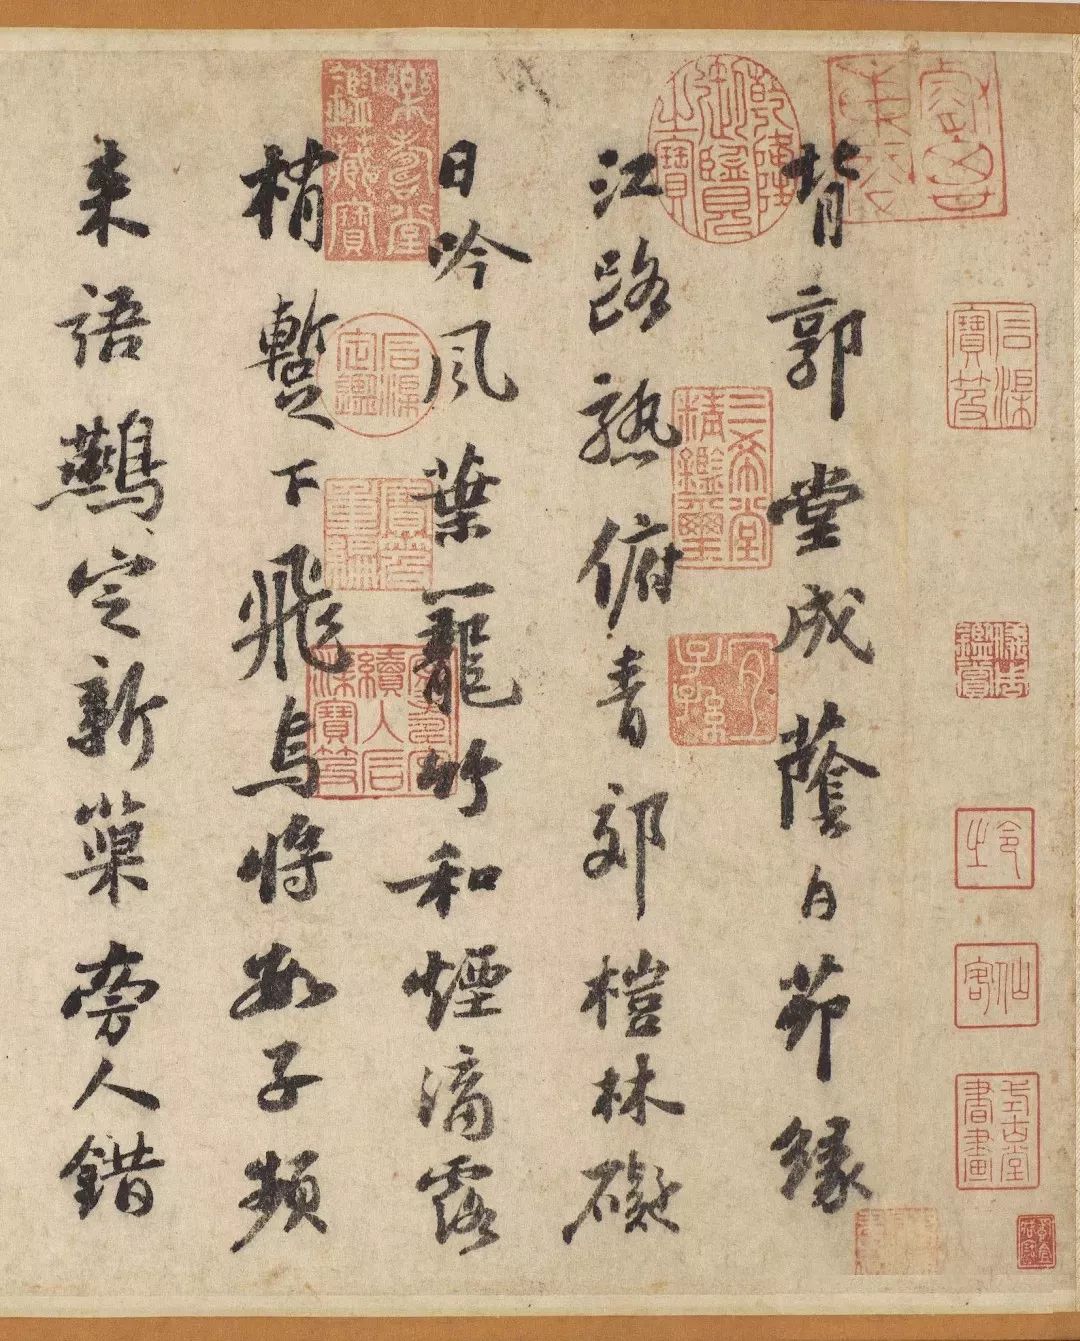 石渠寶笈
乾隆鑑賞
仙客
式古堂書畫
乾隆御覽之寶
背郭堂成蔭白茆緣
三希堂精鑑璽
宜子孫
江路熟俯青郊榿林礙
日吟風葉籠竹和煙滴露
樂壽堂鑑藏寶
石渠定鑑
寶笈重編
寧壽宮續入石渠寶笈
梢暫下飛烏將數子頻
来語鷰定新巢旁人錯